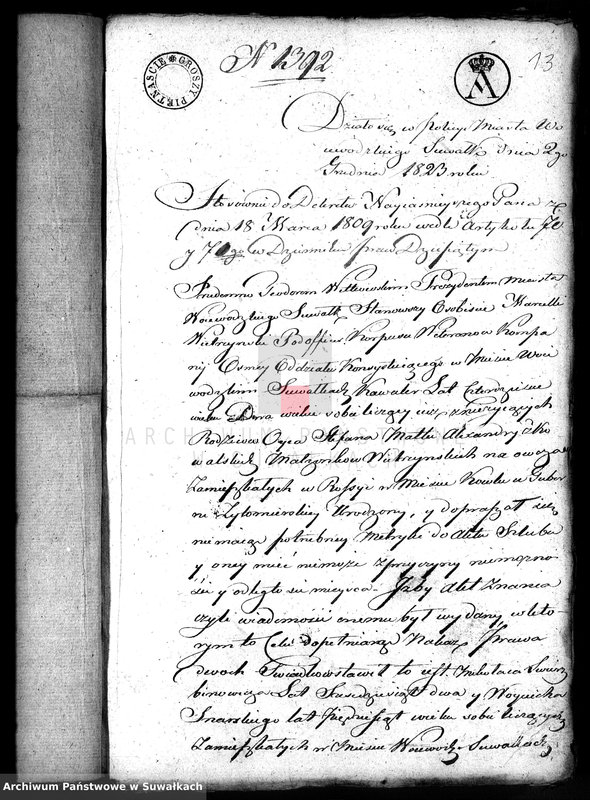 GROSZY PIĘTNAŚCIE
N 1392
13
Działo się w Policyi Miasta Wo
iewodzkiego Suwałk dnia 2go
Grudnia 1823 roku
Stosownie do Dekretu Nayiaśnieyszego Pana z
dnia 18 Marca 1809 roku wedle Artykułu 70
y 71go w Dzienniku Praw Dziesiątym
Przedemną Teodorem Prezydentem Miasta
Woiewodzkiego Suwałk Stanowszy Osobiście Marcelli
Wietrzyński Podofficer Korpusu Weteranow Kompa
nij Osmey Oddziału Konsystuiącego w Mieście Woie
wodzkim Suwałkach Kawaler Lat Czterdzieści
wieku sobie liczący zmierzłych
Rodziców Oyca Stefana Matki Alexandry z Ko
walskich Małżonków Wietrzyńskich na owczas
Zamieszkałych w Rossyi w Mieście Kowlu w Guber
ni Żytomirskiey Urodzony, y dopraszał się
nie maiąc potrzebney Metryki do Aktu Szlubu
y oney mieć niemoże z przyczyny niemożno
ści y odległości mieysca. Iżby Akt Znania
czyli wiadomości onemu był wydany, w któ
rym to Celu dopełniaiąc Nakaz Prawa
dwoch Swiadkow stawił to iest. Mikołaia
Lat Sześćdziesiąt dwa y Woyciecha
Snarskiego lat Pięćdziesiąt wieku sobie liczących
Zamieszkałych w Mieście Woiewodz. Suwałkach
ARCHIWUM PAŃSTWOWE
Archiwum Państwowe w Suwałkach